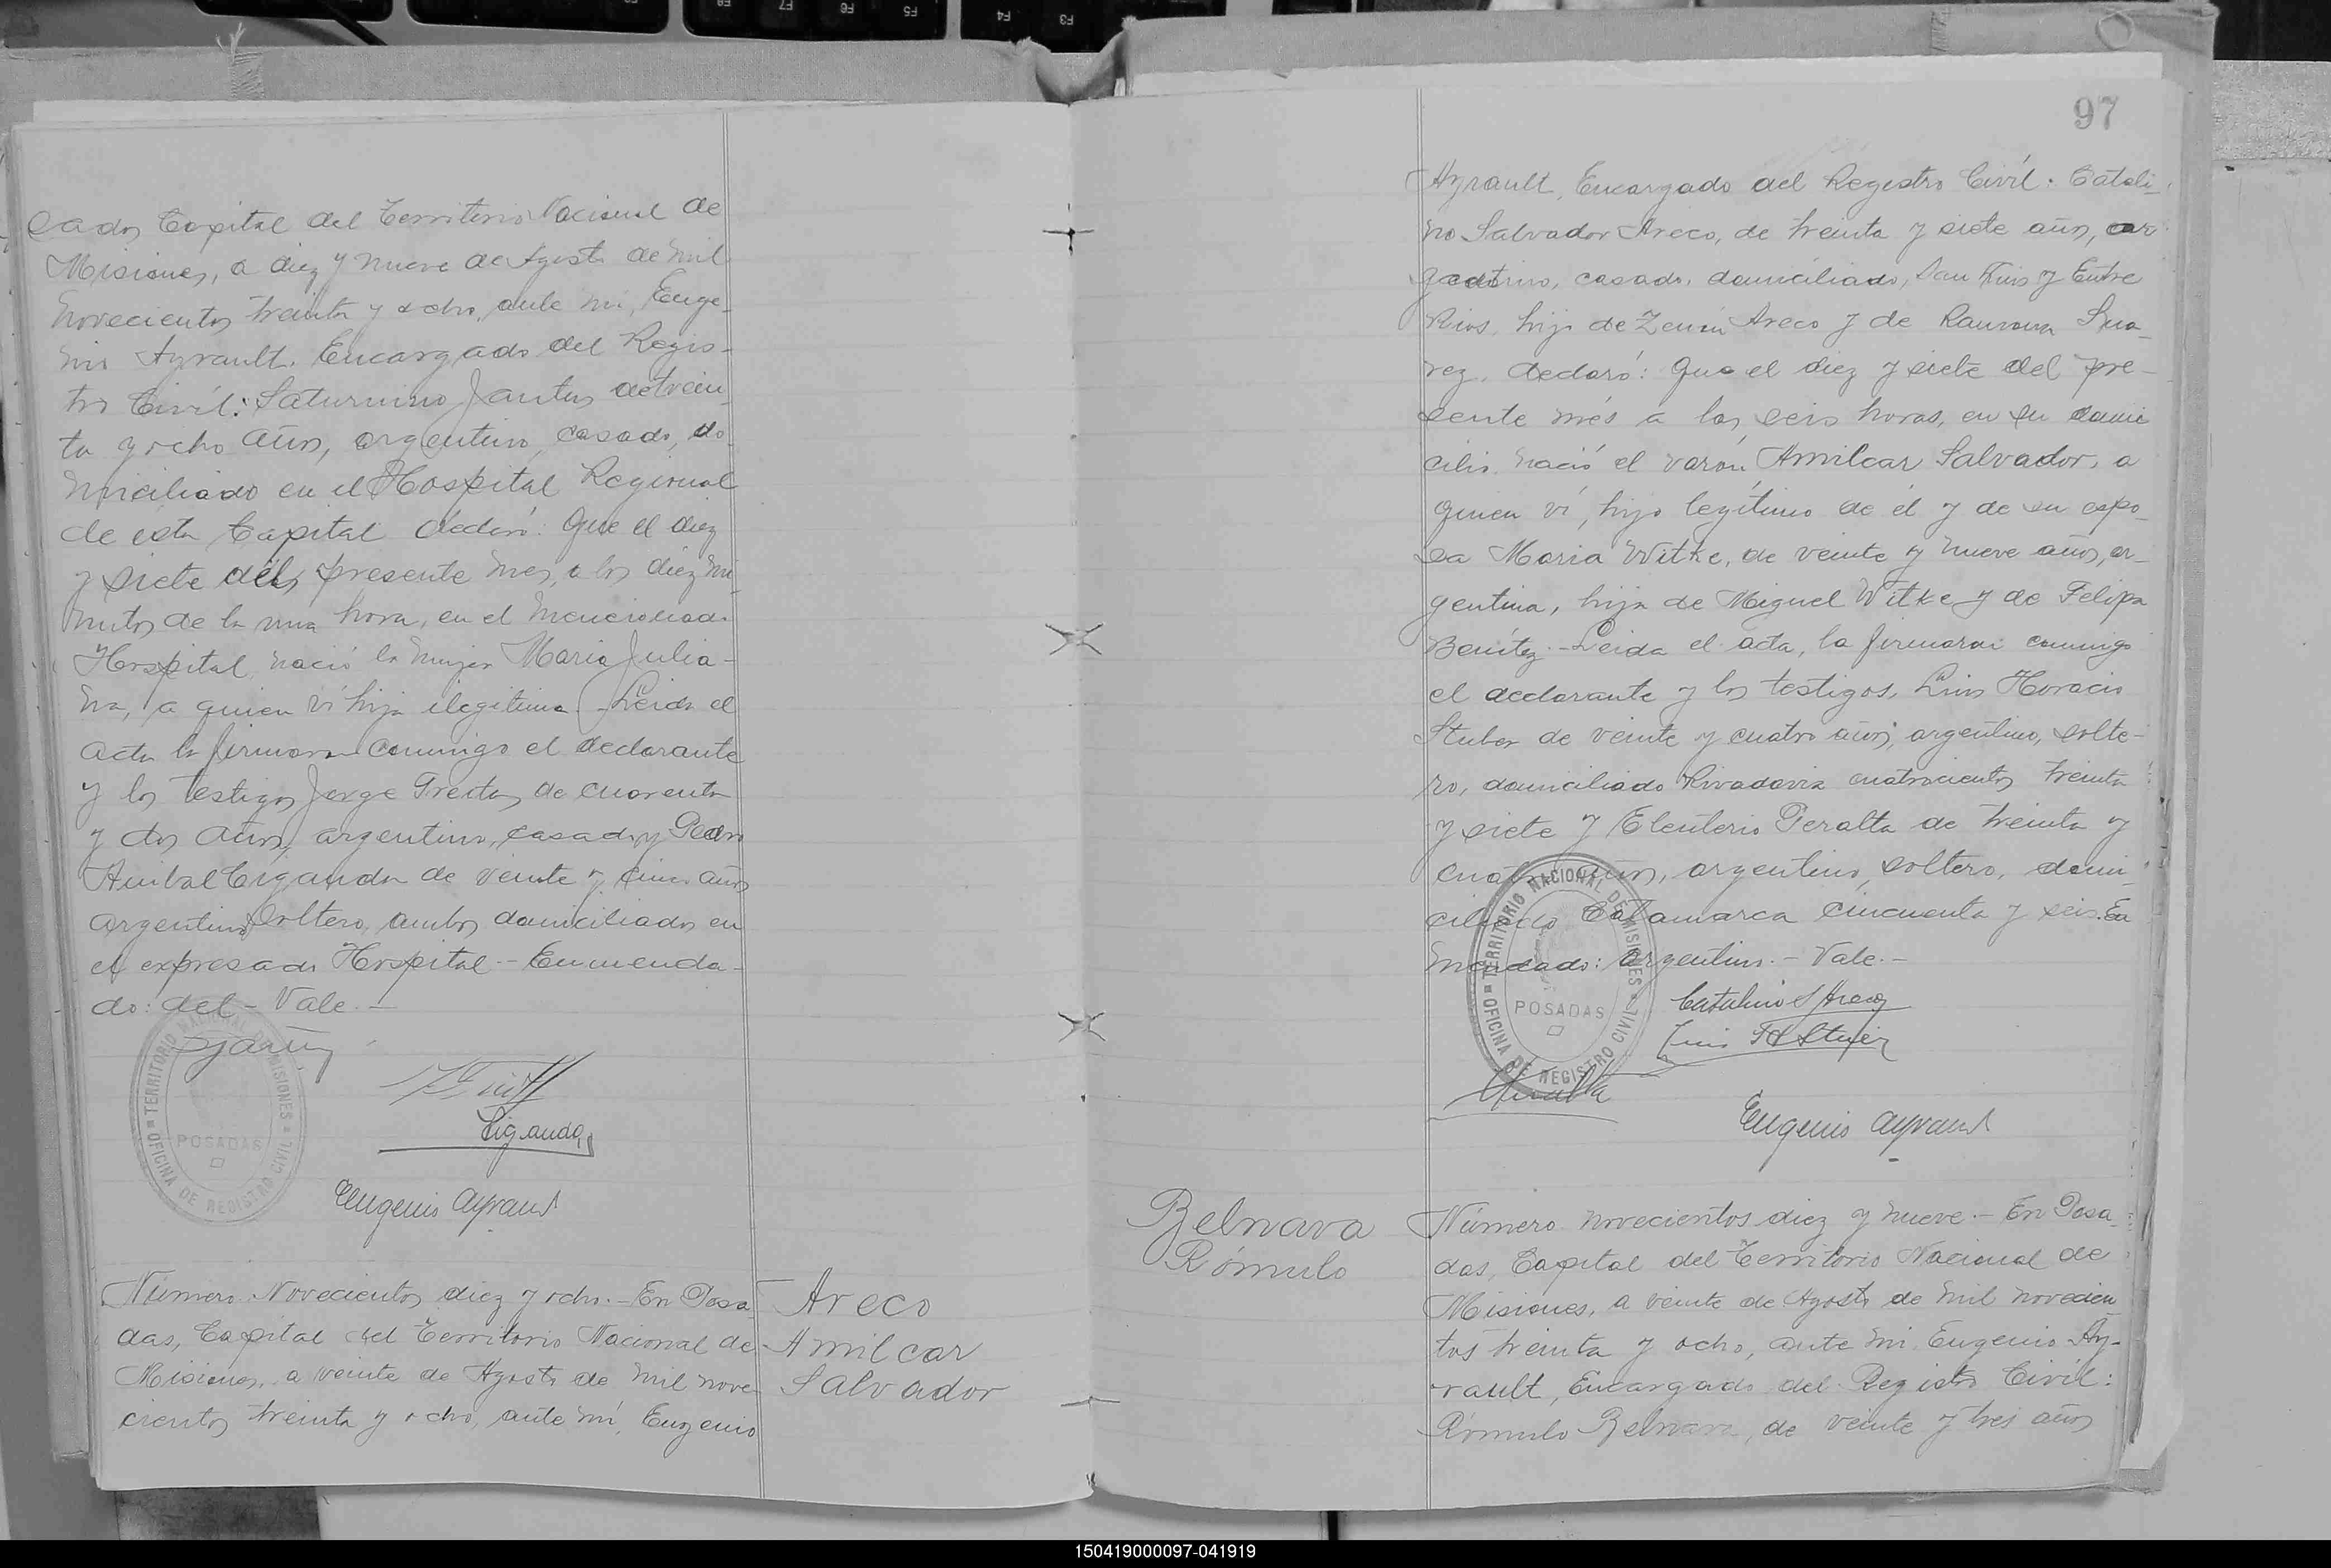 sadas Capital del Territorio Nacional de
Misiones, a diez y nueve de Agosto de mil
novecientos treinta y ocho, ante mi, Euge-
nio Ayrault. Encargado del Regis-
tro Civil: Saturnino Jantus de trein
ta y ocho años, argentino, casado, do-
miciliado en el Hospital Regional
de esta Capital declaró: Que el diez
y siete del presente mes, a los diez mi-
nutos de la una hora, en el mencionado
Hospital, nació la mujer Maria Julia-
na, a quien vi hija ilegitima.- Leida el
acta la firmaron conmigo el declarante
y los testigos Jorge de cuarenta
y dos años, argentino, casado, y Pedro
Anibal Ciganda de veinte y cinco años
argentino soltero, ambos domiciliados en
el expresado Hospital.- Enmenda-
do: del - Vale.-
Ciganda
Eugenio Ayrault
TERRITORIO NACIONAL DE MISIONES
OFICINA DE REGISTRO CIVIL
POSADAS
Número Novecientos diez y ocho.- En Posa
das, Capital del Territorio Nacional de
Misiones, a veinte de Agosto de mil nove
cientos treinta y ocho, ante mí, Eugenio
Areco
Amilcar
Salvador
97
Ayrault, Encargado del Registro Civil: Catali-
no Salvador Areco, de treinta y siete años, ar
gentino, casado, domiciliado, San Luis y Entre
Rios, hijo de Zenón Areco y de Ramona Sua-
rez, declaró: Que el diez y siete del pre-
sente més a las seis horas, en su domi
cilio nació el varón, Amilcar Salvador, a
quien ví, hijo legítimo de él y de su espo-
sa Maria Witke, de veinte y nueve años, ar-
gentina, hija de Miguel Witke y de Felipa
Benítez.- Leida el acta, la firmaron conmigo
el declarante y los testigos, Luis Horacio
Stuber de veinte y cuatro años, argentino, solte-
ro, domiciliado Rivadavia cuatrocientos treinta
y siete y Eleuterio Peralta de treinta y
cuatro años, argentino, soltero, domi-
ciliado Catamarca cincuenta y seis. En
mendado: argentino.- Vale.-
Catalino S Areco
Eugenio Ayrault
TERRITORIO NACIONAL DE MISIONES
OFICINA DE REGISTRO CIVIL
POSADAS
Belnava
Rómulo
Número novecientos diez y nueve.- En Posa-
das, Capital del Territorio Nacional de
Misiones, a veinte de Agosto de mil novecien
tos treinta y ocho, ante mi Eugenio Ay-
rault, Encargado del Registro Civil:
Rómulo Belnava, de veinte y tres años
150419000097-041919